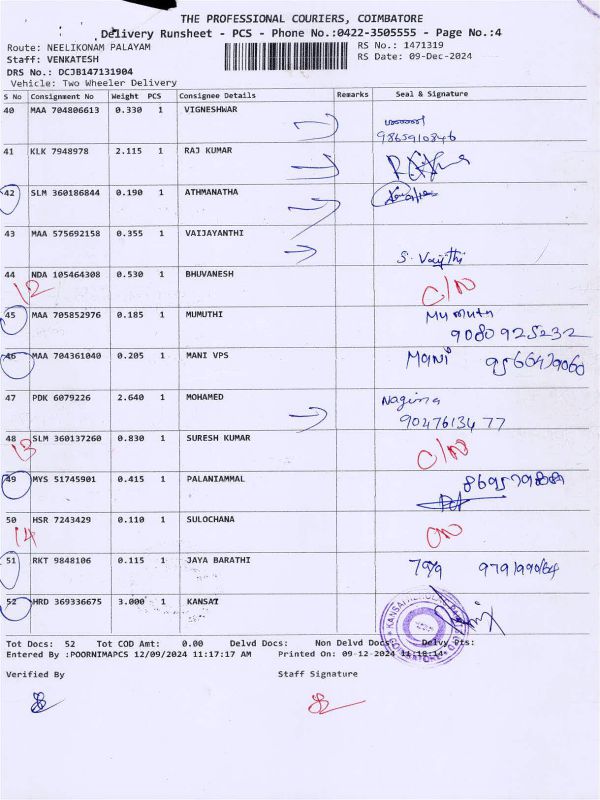 THE PROFESSIONAL COURIERS, COIMBATORE
Delivery Runsheet - PCS - Phone No.:0422-3505555 - Page No.:4
Route: NEELIKONAM PALAYAM RS No.: 1471319
Staff: VENKATESH RS Date: 09-Dec-2024
DRS No.: DCJB147131904
Vehicle: Two Wheeler Delivery
S No Consignment No Weight PCS Consignee Details Remarks Seal & Signature
40 MAA 704806613 0.330 1 VIGNESHWAR
9865910846
41 KLK 7948978 2.115 1 RAJ KUMAR
42 SLM 360186844 0.190 1 ATHMANATHA
43 MAA 575692158 0.355 1 VAIJAYANTHI
44 NDA 105464308 0.530 1 BHUVANESH
12 C/N
45 MAA 705852976 0.185 1 MUMUTHI
9080925232
46 MAA 704361040 0.205 1 MANI VPS Mani
47 PDK 6079226 2.640 1 MOHAMED Nagima
9047613477
48 SLM 360137260 0.830 1 SURESH KUMAR
13 C/N
49 MYS 51745901 0.415 1 PALANIAMMAL
50 HSR 7243429 0.110 1 SULOCHANA
14
51 RKT 9848106 0.115 1 JAYA BARATHI
52 HRD 369336675 3.000 1 KANSAI
Tot Docs: 52 Tot COD Amt: 0.00 Delvd Docs: Non Delvd Docs: Delvy Pts:
Entered By :POORNIMAPCS 12/09/2024 11:17:17 AM Printed On: 09-12-2024 11:18:14
Verified By Staff Signature